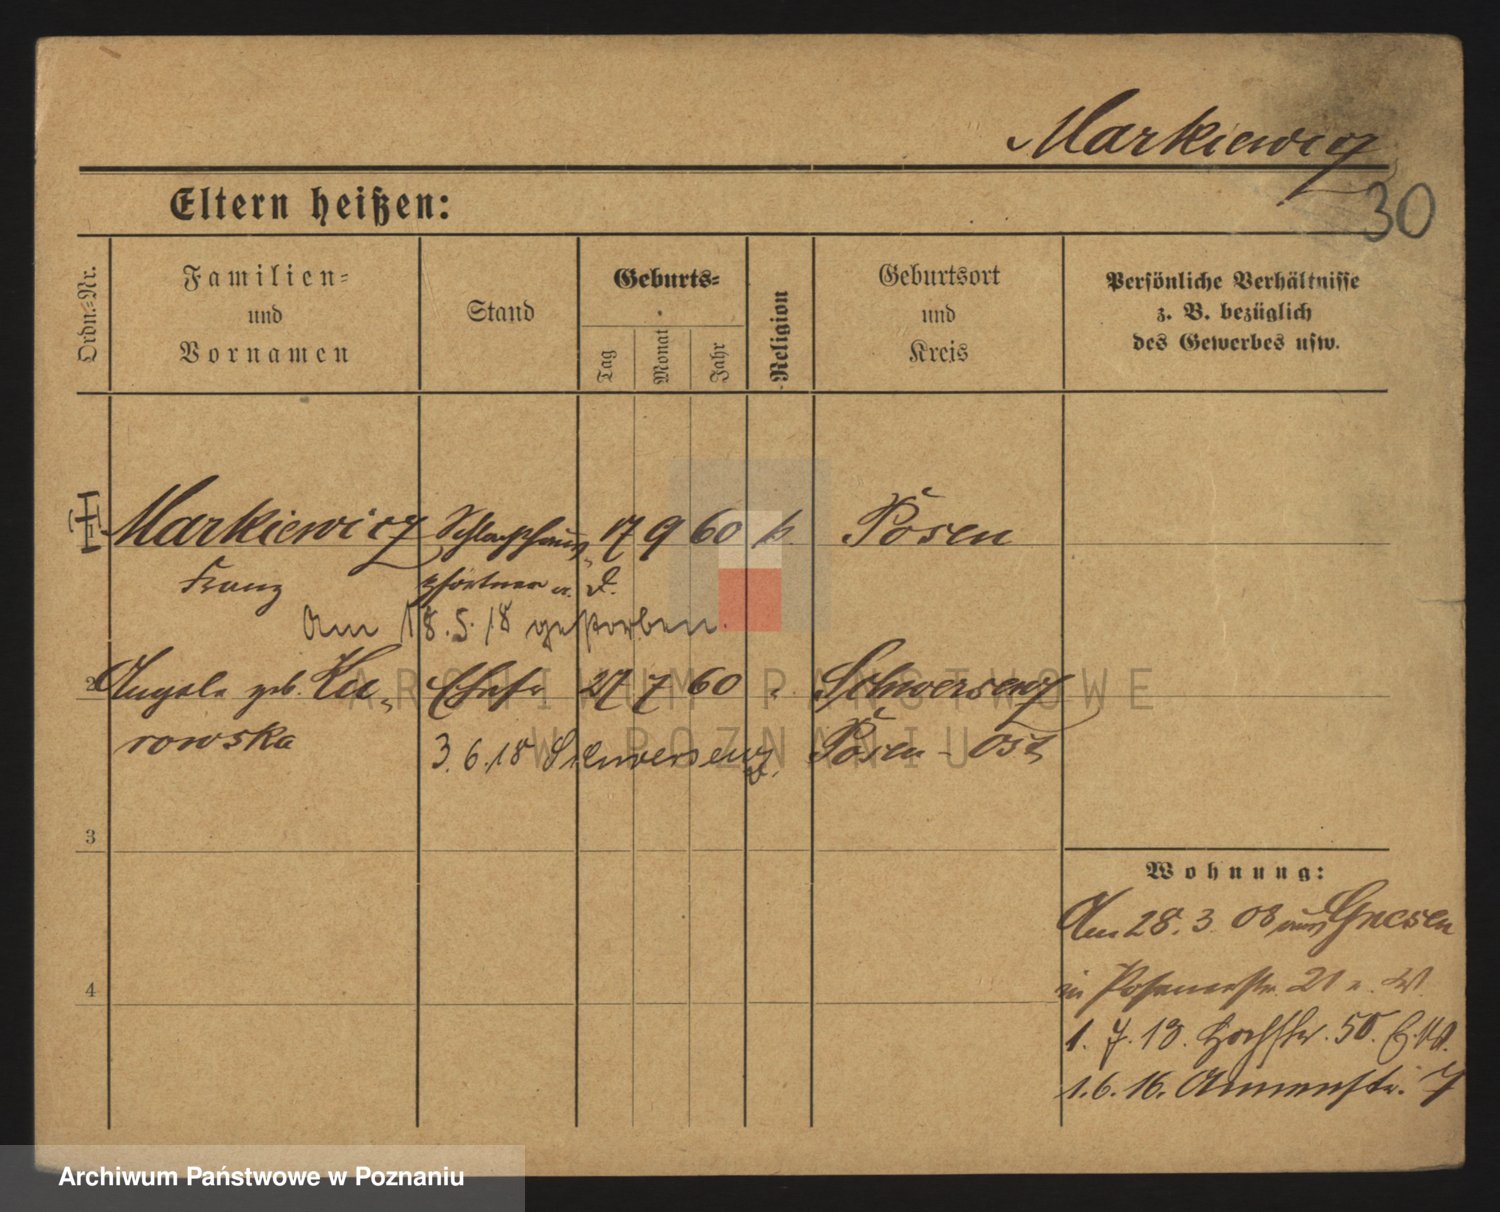 Markiewicz
30
Eltern heißen:
Ordn.-Nr.
Familien-
und
Vornamen
Stand
Geburts-
Tag
Monat
Jahr
Religion
Geburtsort
und
Kreis
Persönliche Verhältnisse
z. B. bezüglich
des Gewerbes usw.
Markiewicz 17 9 60 k. Posen
Franz
Am 18.5.18 gestorben.
2 geb. Ku- Ehefr 27 7 60 Schwersenz
rowska 3.6.18 Schwersenz Posen-Ost
3
4
Wohnung:
Am 28.3.08 aus Gnesen
in Posenerstr. 21
1.7.13. Hochstr. 50.
1.6.16. Annenstr. 7
ARCHIWUM PAŃSTWOWE
W POZNANIU
Archiwum Państwowe w Poznaniu